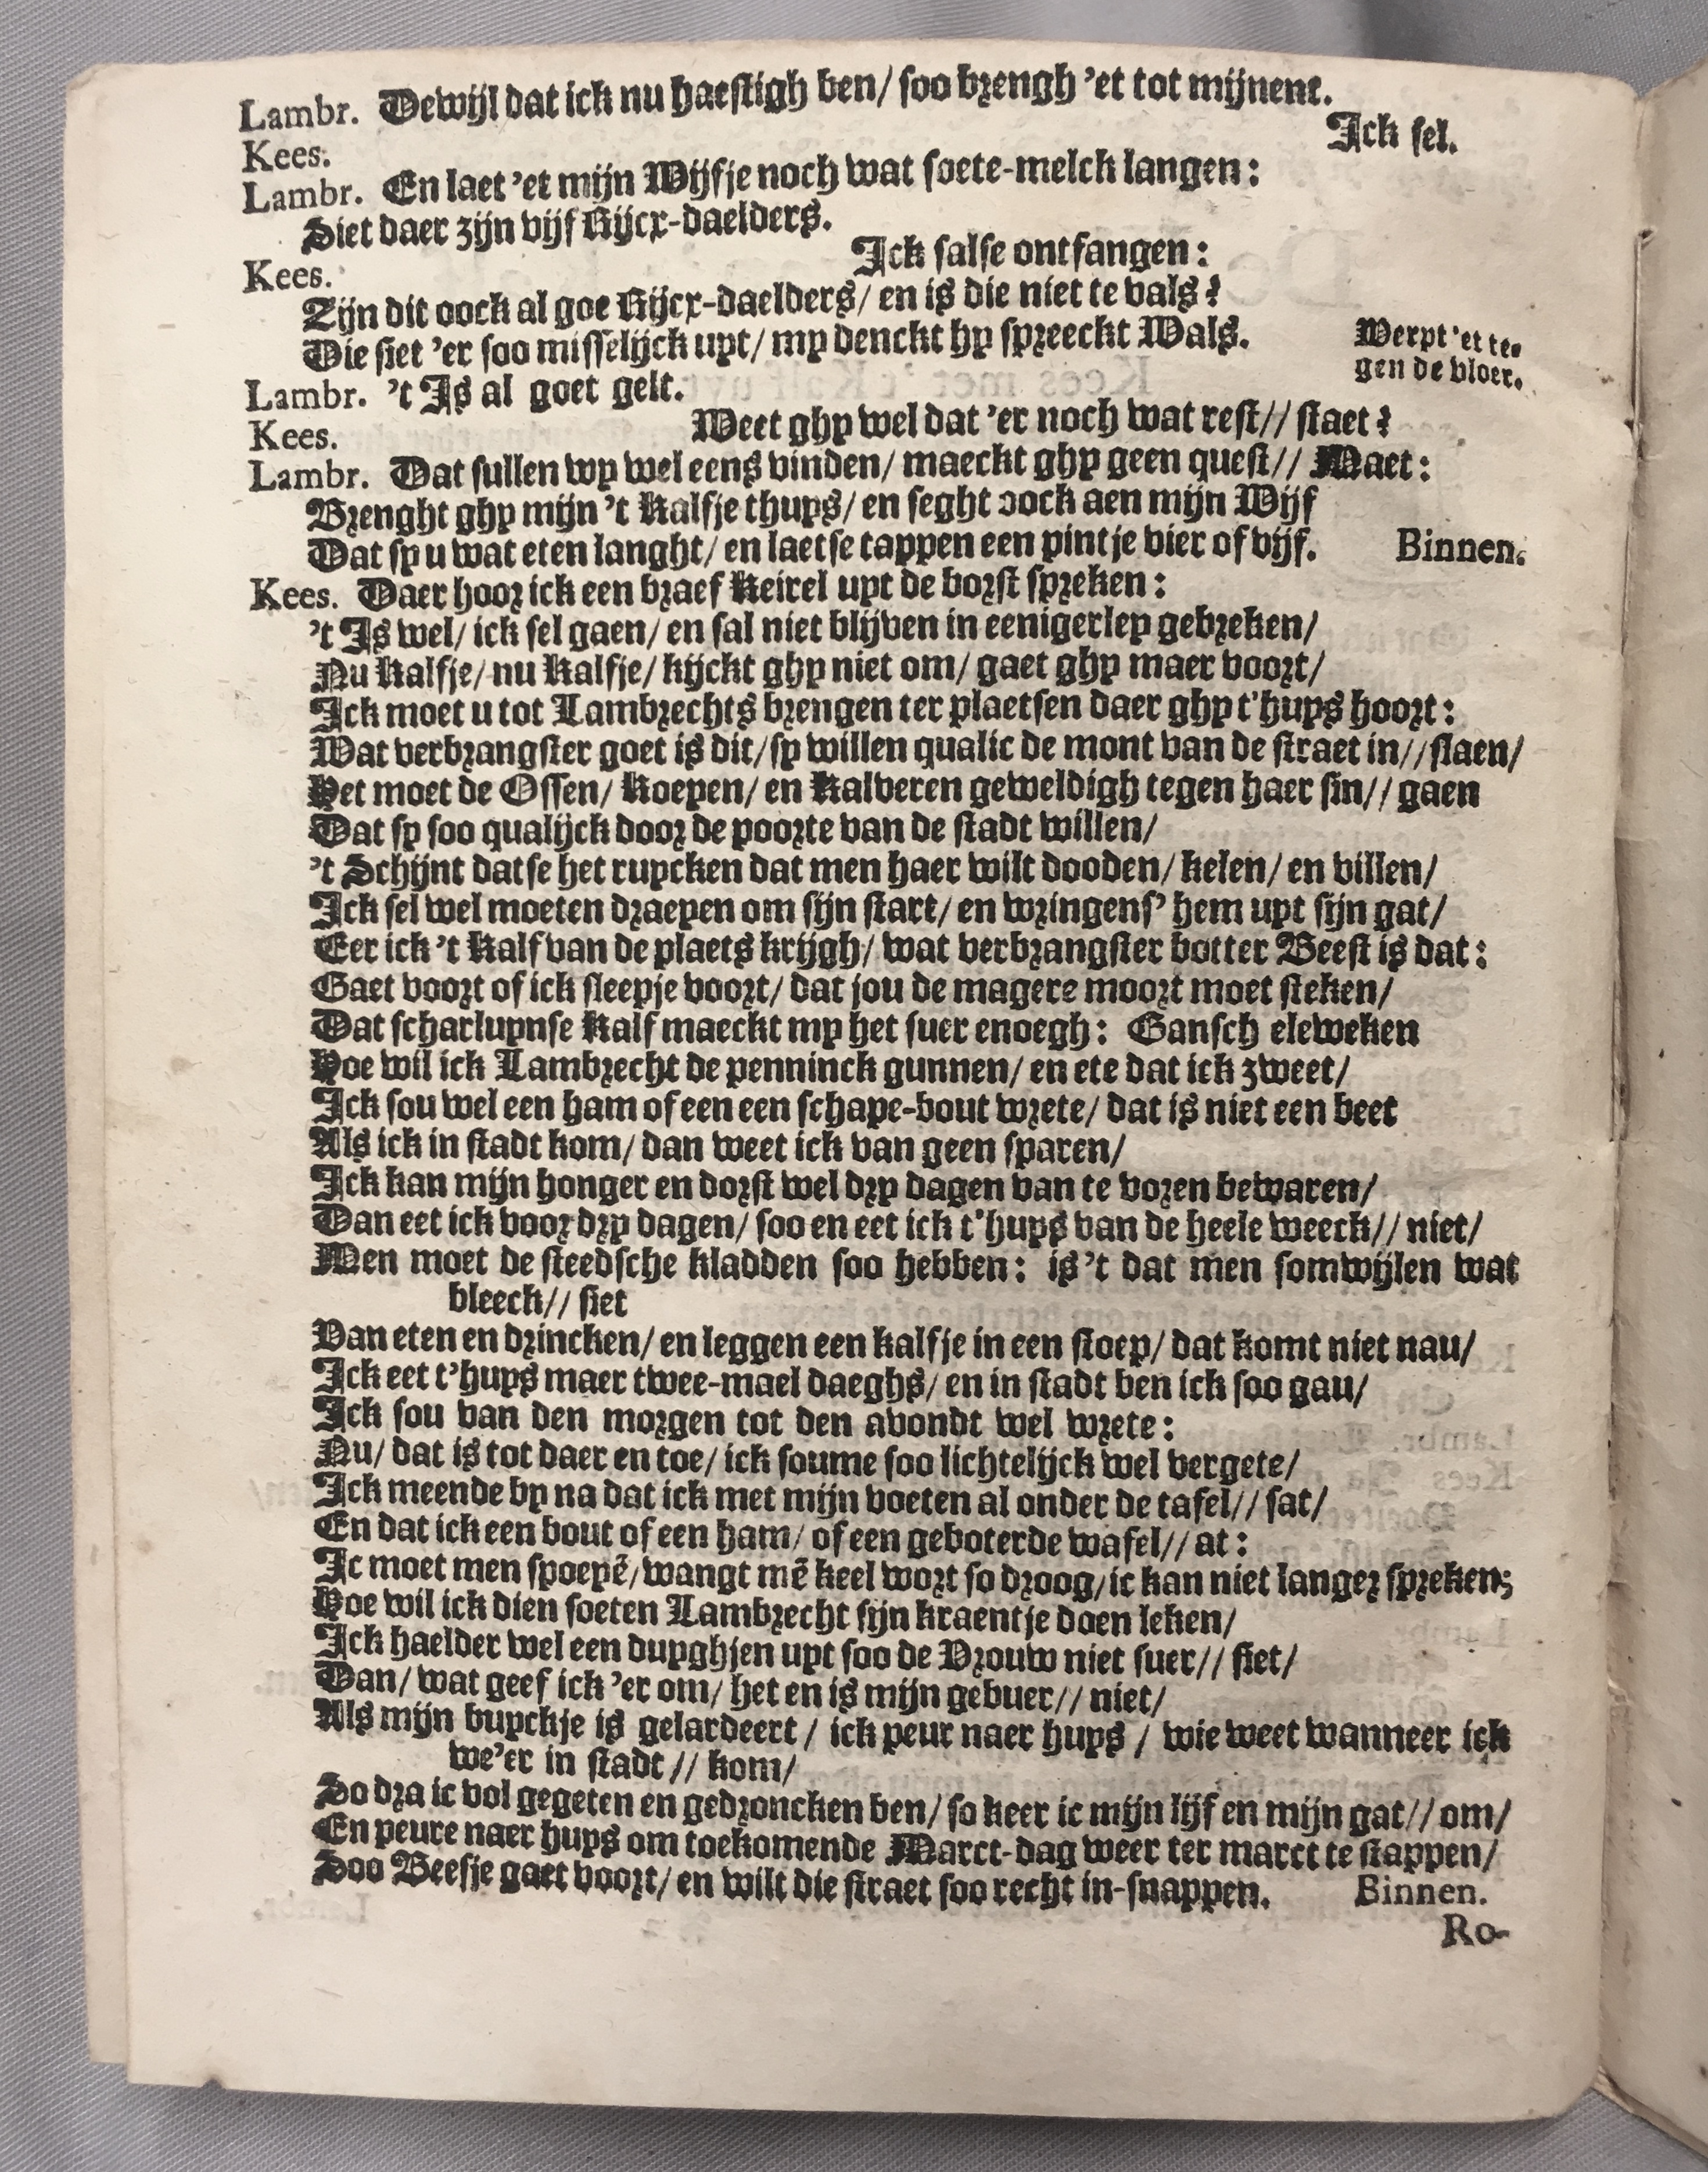 Lambr. Dewijl dat ick nu haestigh ben/ soo brengh 'et tot mijnent.
Kees. Ick sel.
Lambr. En laet 'et mijn Wijfje noch wat soete-melck langen:
Siet daer zijn vijf Rijcx-daelders.
Kees. Ick salse ontfangen:
Zijn dit oock al goe Rijcx-daelders/ en is die niet te vals?
Die siet 'er soo misselijck uyt/ my denckt hy spreeckt Wals. Werpt 'et te-
gen de vloer.
Lambr. 't Is al goet gelt.
Kees. Weet ghy wel dat 'er noch wat rest// staet?
Lambr. Dat sullen wy wel eens vinden/ maeckt ghy geen quest// Maet:
Brenght ghy mijn 't Kalfje thuys/ en seght oock aen mijn Wijf
Dat sy u wat eten langht/ en laetse tappen een pintje vier of vijf. Binnen.
Kees. Daer hoor ick een braef Keirel uyt de borst spreken:
't Is wel/ ick sel gaen/ en sal niet blijven in eenigerley gebreken/
Nu Kalfje/ nu Kalfje/ kijckt ghy niet om/ gaet ghy maer voort/
Ick moet u tot Lambrechts brengen ter plaetsen daer ghy t'huys hoort:
Wat verbrangster goet is dit/ sy willen qualic de mont van de straet in// slaen/
Het moet de Ossen/ Koeyen/ en Kalveren geweldigh tegen haer sin// gaen
Dat sy soo qualijck door de poorte van de stadt willen/
't Schijnt datse het ruycken dat men haer wilt dooden/ kelen/ en villen/
Ick sel wel moeten draeyen om sijn start/ en wringens' hem uyt sijn gat/
Eer ick 't Kalf van de plaets krijgh/ wat verbrangster botter Beest is dat:
Gaet voort of ick sleepje voort/ dat jou de magere moort moet steken/
Dat scharluynse Kalf maeckt my het suer enoegh: Gansch eleweken
Hoe wil ick Lambrecht de penninck gunnen/ en ete dat ick zweet/
Ick sou wel een ham of een een schape-bout wrete/ dat is niet een beet
Als ick in stadt kom/ dan weet ick van geen sparen/
Ick kan mijn honger en dorst wel dry dagen van te voren bewaren/
Dan eet ick voor dry dagen/ soo en eet ick t'huys van de heele weeck// niet/
Men moet de steedsche kladden soo hebben: is 't dat men somwijlen wat
bleeck// siet
Van eten en drincken/ en leggen een kalfje in een stoep/ dat komt niet nau/
Ick eet t'huys maer twee-mael daeghs/ en in stadt ben ick soo gau/
Ick sou van den morgen tot den avondt wel wrete:
Nu/ dat is tot daer en toe/ ick soume soo lichtelijck wel vergete/
Ick meende by na dat ick met mijn voeten al onder de tafel// sat/
En dat ick een bout of een ham/ of een geboterde wafel// at:
Ic moet men spoeyē/ wangt mē keel wort so droog/ ic kan niet langer spreken;
Hoe wil ick dien soeten Lambrecht sijn kraentje doen leken/
Ick haelder wel een duyghjen uyt soo de Vrouw niet suer// siet/
Dan/ wat geef ick 'er om/ het en is mijn gebuer// niet/
Als mijn buyckje is gelardeert / ick peur naer huys / wie weet wanneer ick
we'er in stadt // kom/
So dra ic vol gegeten en gedroncken ben/ so keer ic mijn lijf en mijn gat// om/
En peure naer huys om toekomende Marct-dag weer ter marct te stappen/
Soo Beesje gaet voort/ en wilt die straet soo recht in-snappen. Binnen.
Ro-